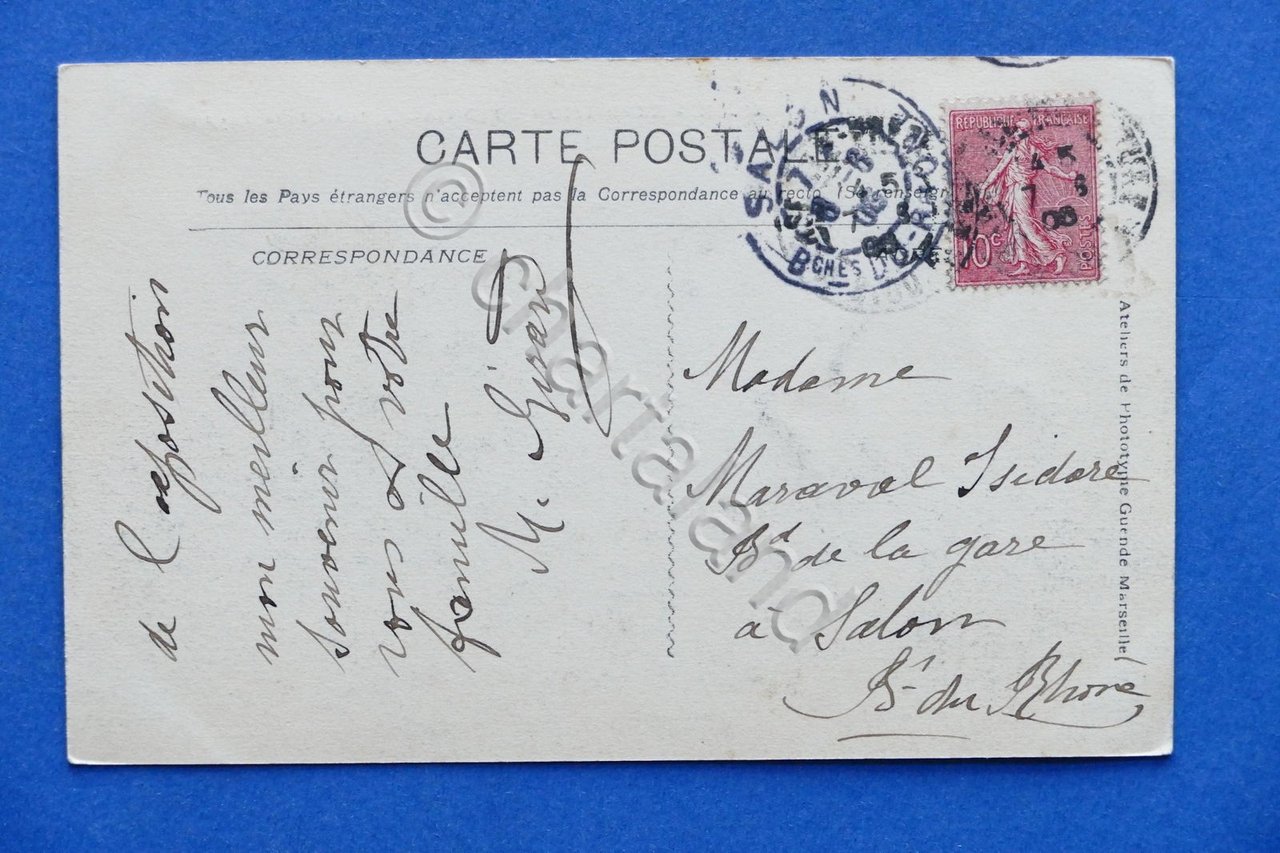 CARTE POSTALE
Tous les Pays étrangers n'acceptent pas la Correspondance au recto (Se renseign
CORRESPONDANCE
de l'exposition
mon meilleur
souvenir pour
vous et votre
famille
M. Girard
Madame
Maraval Isidore
Bd de la gare
à Salon
Bs du Rhône
RÉPUBLIQUE FRANÇAISE
10c
POSTES
SALON
BCHES DU-RHONE
Ateliers de Phototypie Guende Marseille
© chartaland